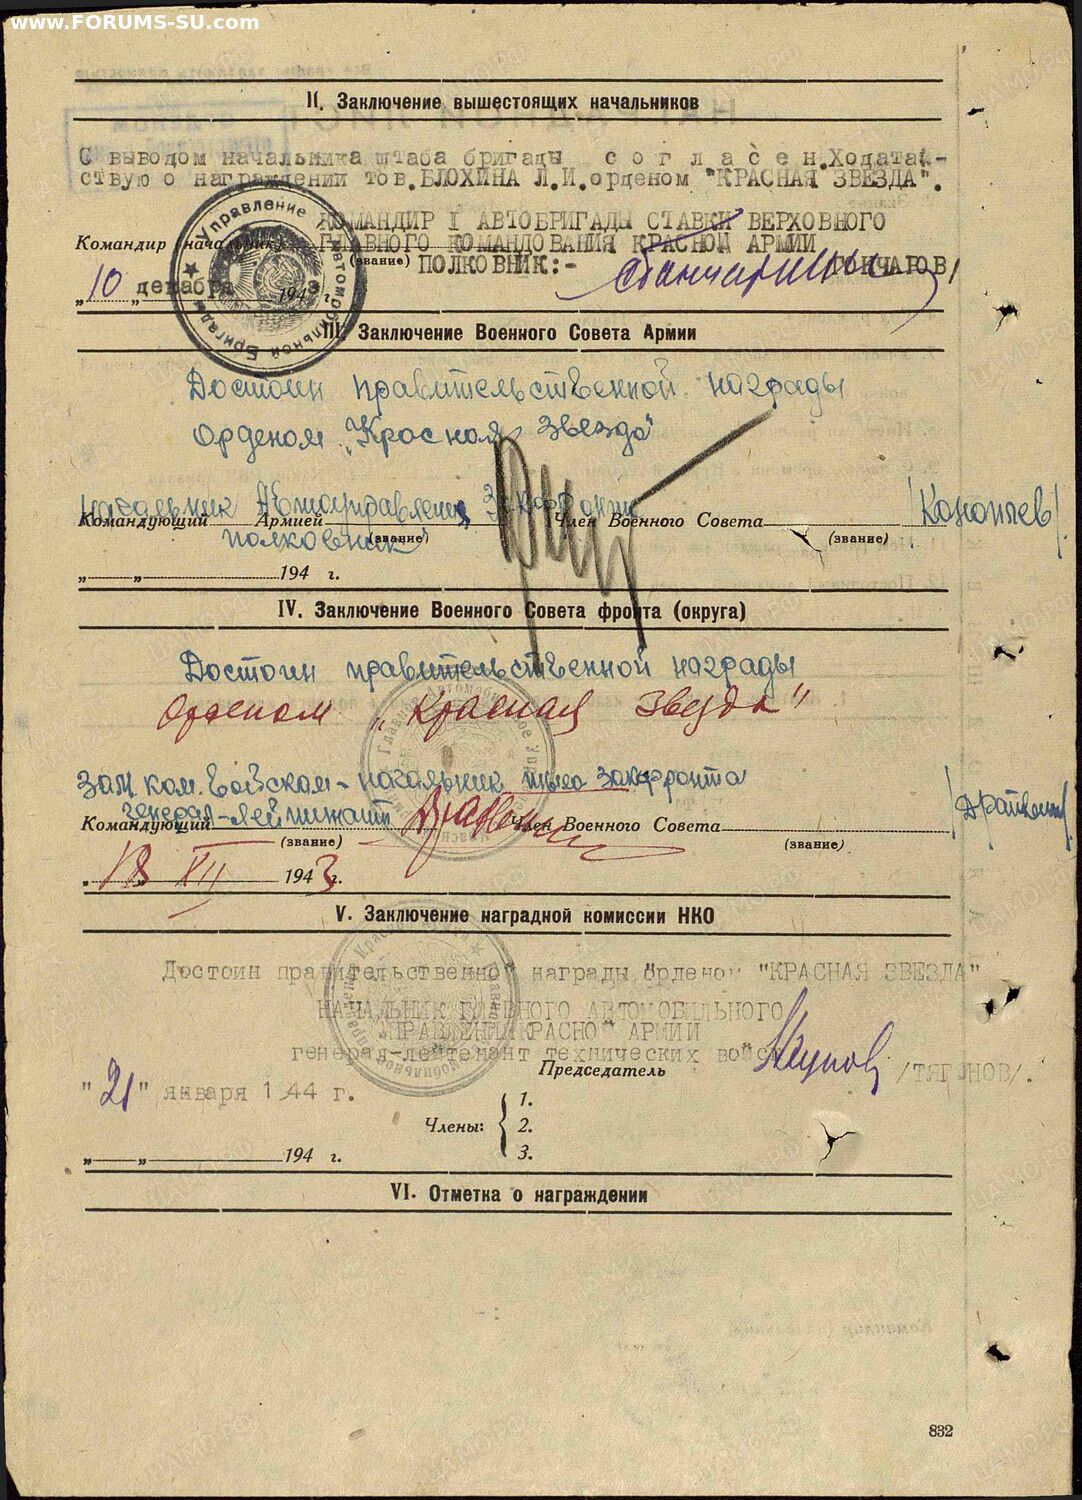 www.FORUMS-SU.com
II. Заключение вышестоящих начальников
С выводом начальника штаба бригады согласен. Ходатай-
ствую о награждении тов. БЛОХИНА Л.И. орденом "КРАСНАЯ ЗВЕЗДА".
КОМАНДИР I АВТОБРИГАДЫ СТАВКИ ВЕРХОВНОГО
Командир (начальник) ГЛАВНОГО КОМАНДОВАНИЯ КРАСНОЙ АРМИИ
(звание) ПОЛКОВНИК:- /ГОНЧАРОВ/
„10„ декабря 1943 г.
Управление Автомобильной Бригады
III. Заключение Военного Совета Армии
Достоин правительственной награды
Орденом „Красная Звезда"
Начальник Автоуправления Закфронта
Командующий Армией Член Военного Совета
полковник (звание) (звание)
„ „ 194 г.
IV. Заключение Военного Совета фронта (округа)
Достоин правительственной награды
Орденом „Красная Звезда"
Зам. ком. войскам - начальник тыла Закфронта
генерал-лейтенант
Командующий Член Военного Совета
(звание) (звание)
„18 XII 1943 г.
V. Заключение наградной комиссии НКО
Достоин правительственной награды орденом "КРАСНАЯ ЗВЕЗДА"
НАЧАЛЬНИК ГЛАВНОГО АВТОМОБИЛЬНОГО
УПРАВЛЕНИЯ КРАСНОЙ АРМИИ
генерал-лейтенант технических войск
Председатель /ТЯГУНОВ/.
"21" января 1944 г.
Члены:
1.
2.
3.
„ „ 194 г.
VI. Отметка о награждении
832